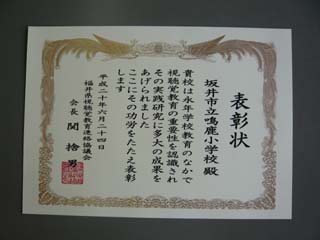 表彰状
坂井市立鳴鹿小学校 殿
貴校は永年学校教育のなかで
視聴覚教育の重要性を認識され
その実践研究に多大の成果を
あげられました
ここにその功労をたたえ表彰
します
平成二十年六月二十四日
福井県視聴覚教育連絡協議会
会長 関 捨男